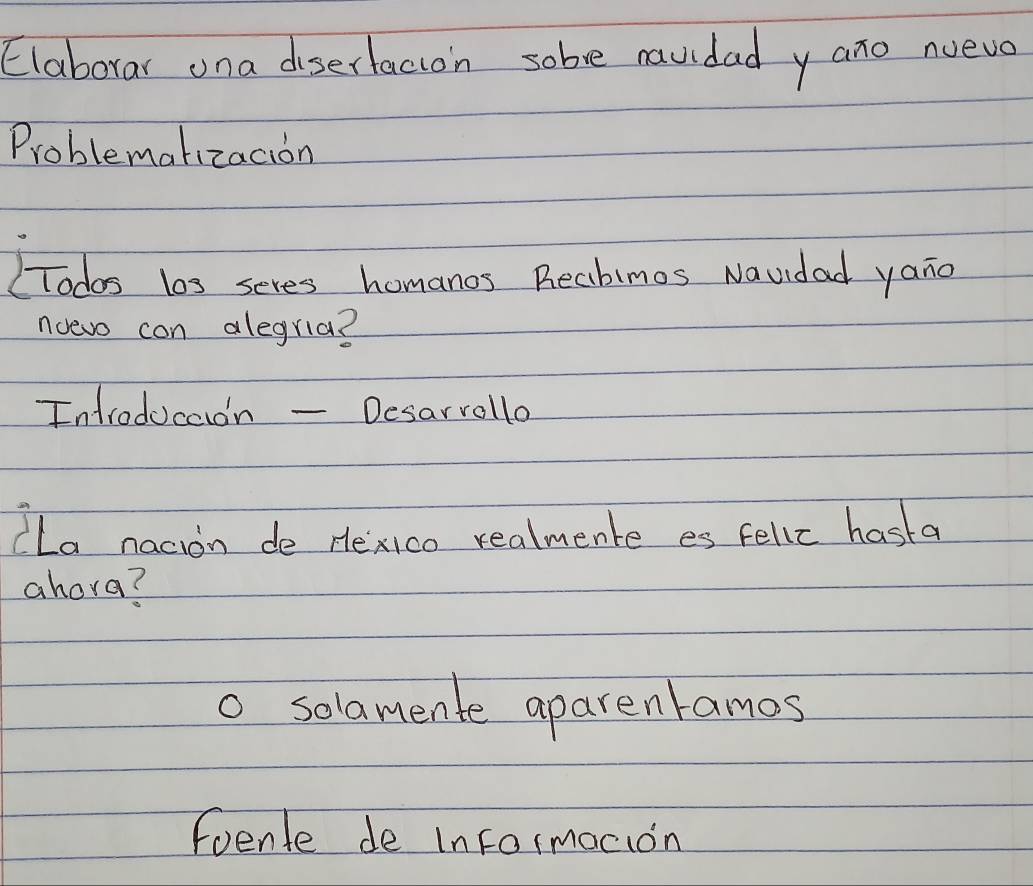 Elaborar una disertación sobre navidad y año nuevo
Problematización
¿Todos los seres humanos Recibimos Navidad y año
nuevo con alegria?
Introducción - Desarrollo
¿La nación de México realmente es feliz hasta
ahora?
o solamente aparentamos
Fuente de Información